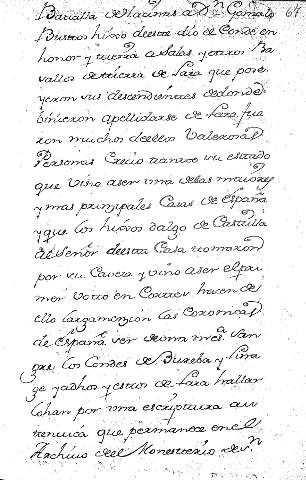 Batalla de Hacinas a Dⁿ Gonzalo 67
Bustos hizo deesta dio el Conde en
honor y tierra a Salas y otros Ba
vallos de tierra de Lara que pose
yeron sus descendientes de donde
binieron apellidarse de Lara fue
ron muchos deellos Valerosas
Personas Crecio tanto su estado
que vino aser una delas maiores
y mas principales Casas de España
y que los hijos dalgo de Castilla
al Señor deesta Casa tomaron
por su Caveza y vino aser el pri
mer voto en Cortes hacen de
ello larga mención las Coronicas
de España ser de una mesᵃ san
gre los Condes de Bureba y Lina
ge yadhos y estos de Lara hallar
lohan por una escriptura au
tentica que permanece en el
Archivo del Monesterio de Sⁿ